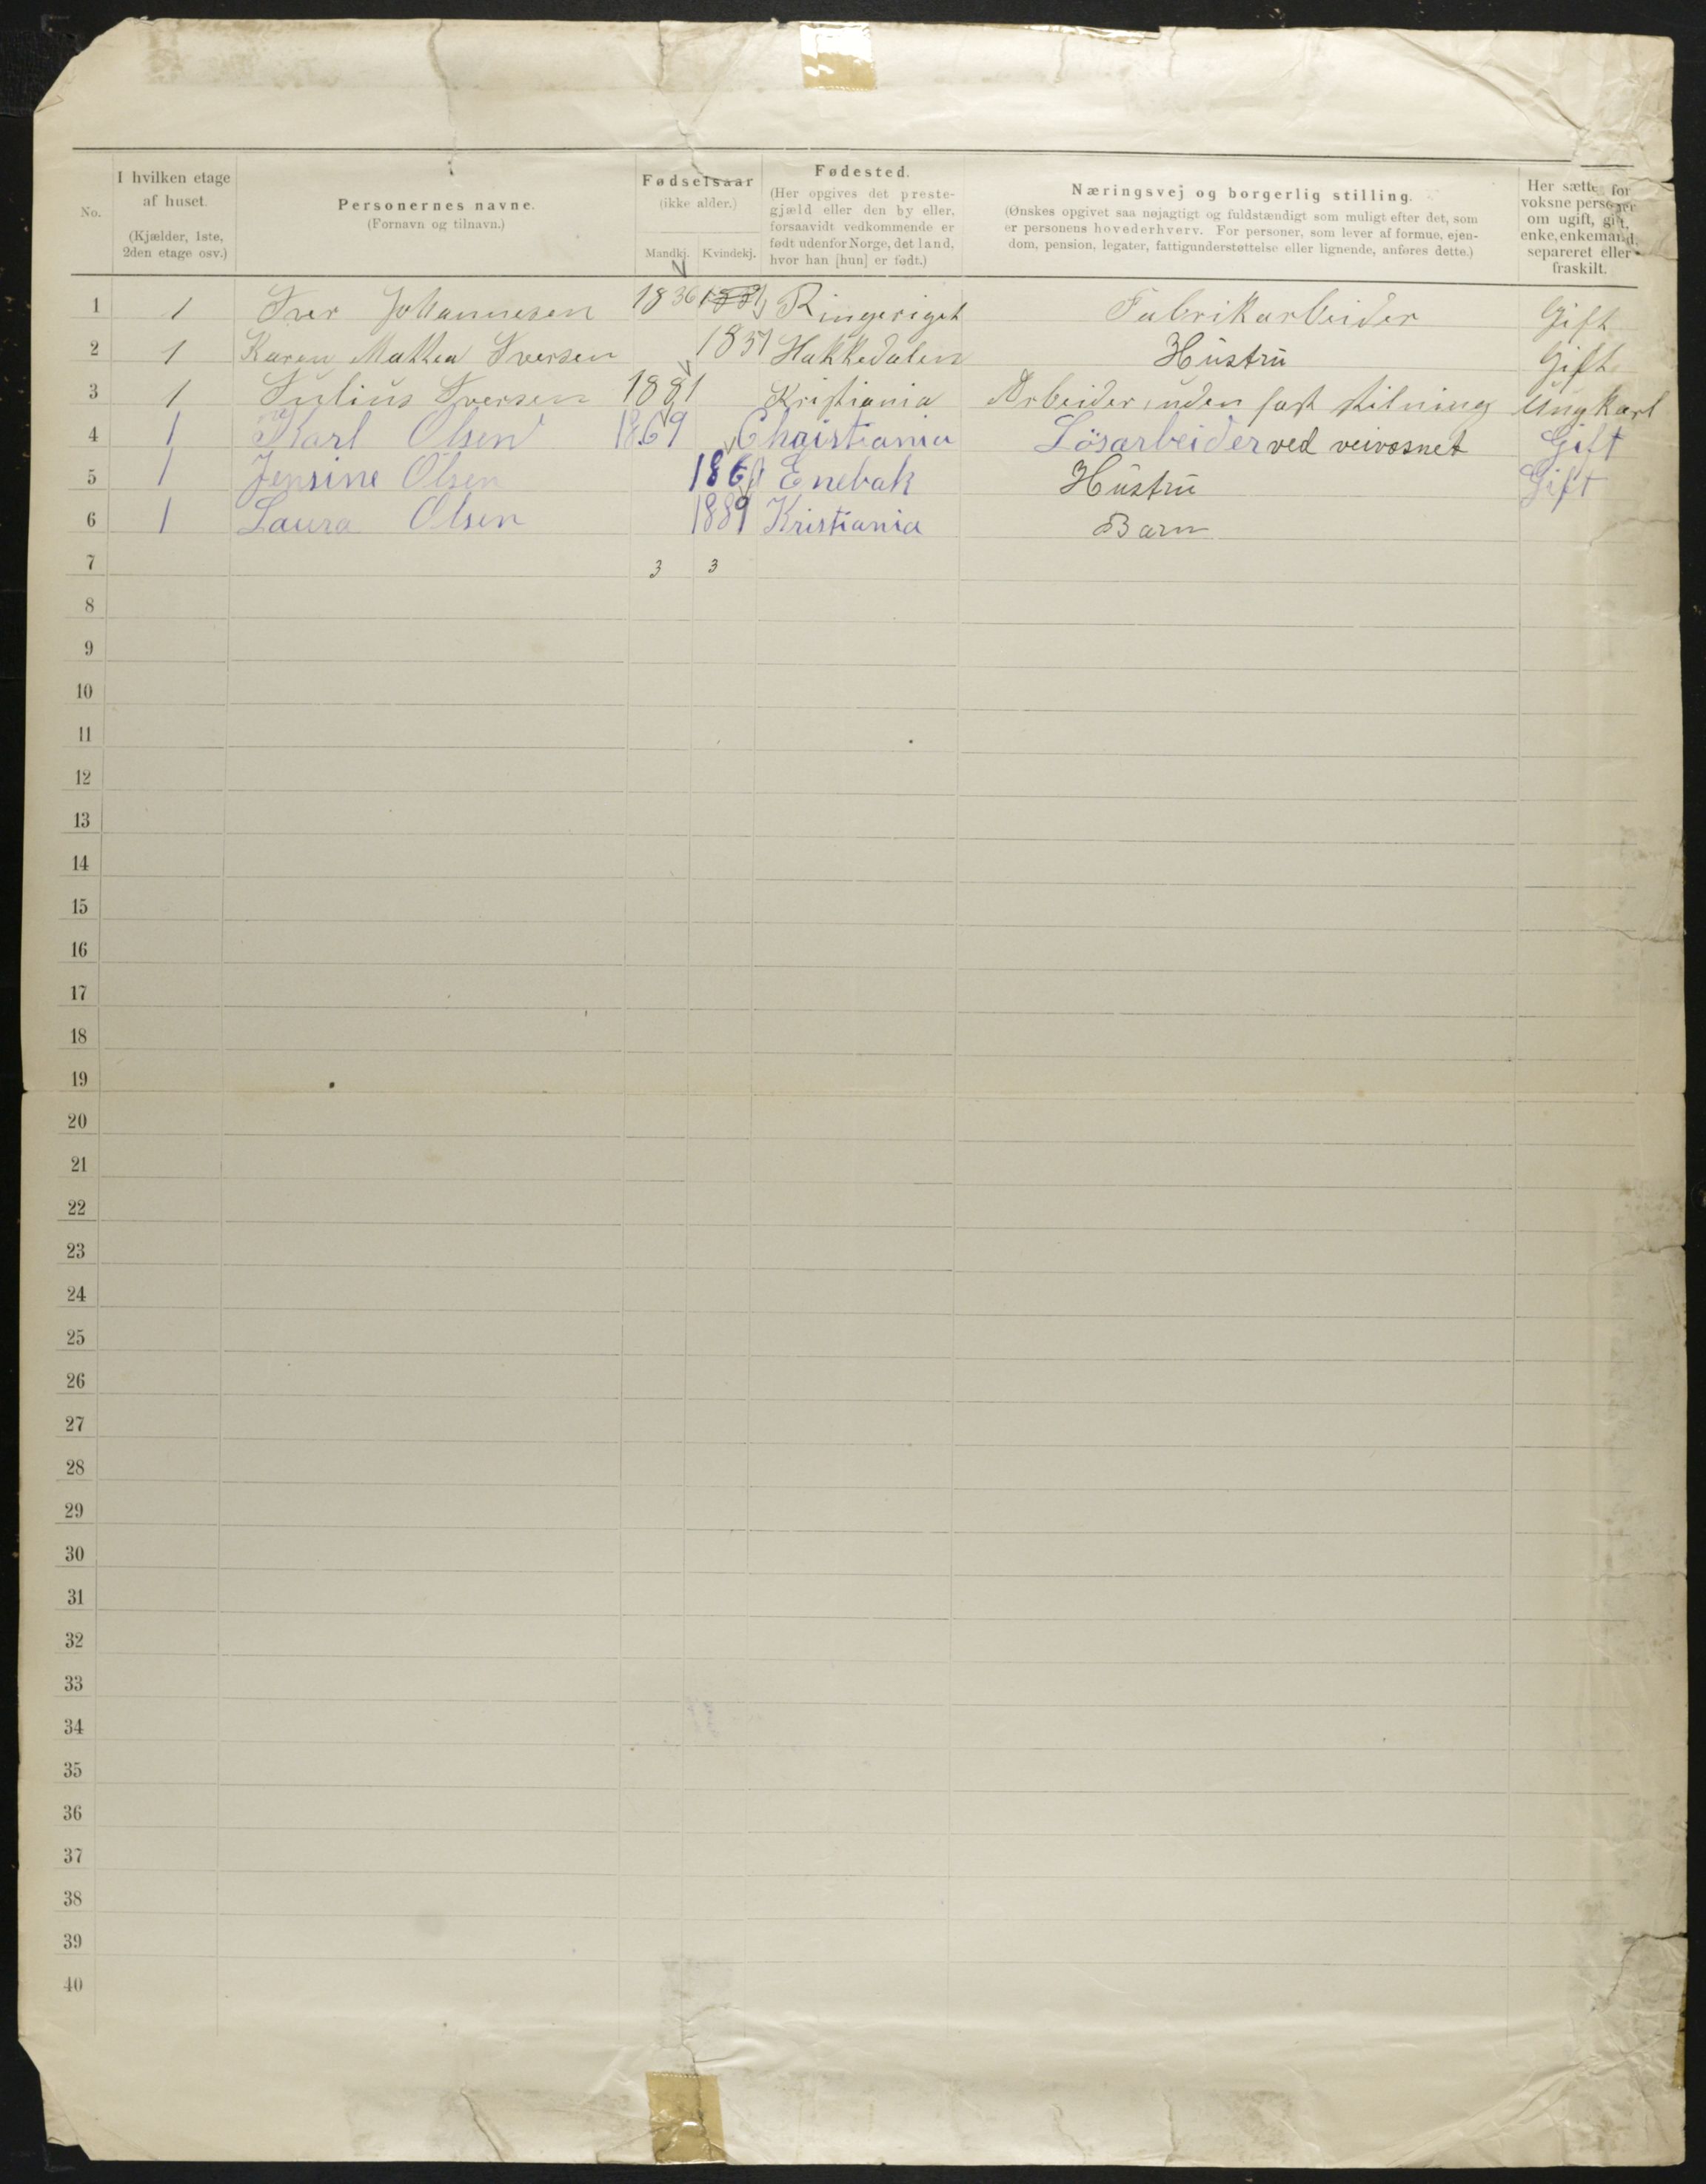 No.
I hvilken etage af huset. (Kjælder, 1ste, 2den etage osv.)
Personernes navne. (Fornavn og tilnavn.)
Fødselsaar (ikke alder.)
Mandkj. Kvindekj.
Fødested.
(Her opgives det preste-
gjæld eller den by eller,
forsaavidt vedkommende er
født udenfor Norge, det land,
hvor han [hun] er født.)
Næringsvej og borgerlig stilling.
(Ønskes opgivet saa nøjagtigt og fuldstændigt som muligt efter det, som
er personens hovederhverv. For personer, som lever af formue, ejen-
dom, pension, legater, fattigunderstøttelse eller lignende, anføres dette.)
Her sættes for
voksne personer
om ugift, gift,
enke, enkemand,
separeret eller
fraskilt.
1 1 Iver Johannesen 1836 Ringeriget Fabrikarbeider Gift
2 1 Karen Mathea Iversen 1837 Hakkedalen Hustru Gift
3 1 Julius Iversen 1881 Kristiania Arbeider uden fast stilning Ungkarl
4 1 Karl Olsen 1869 Christiania Lösarbeider ved veivæsnet Gift
5 1 Jensine Olsen Enebak Hustru Gift
6 1 Laura Olsen 1889 Kristiania Barn
7 3 3
8
9
10
11
12
13
14
15
16
17
18
19
20
21
22
23
24
25
26
27
28
29
30
31
32
33
34
35
36
37
38
39
40